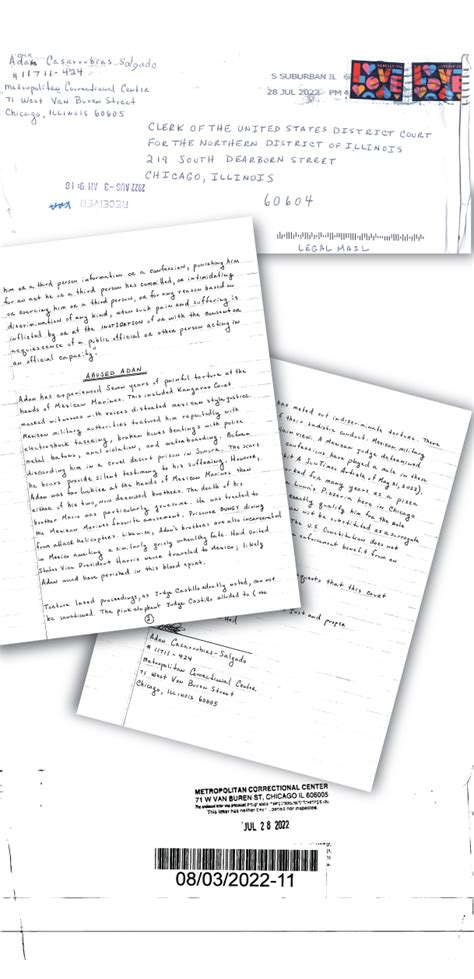 Adam Casarrubias-Salgado
# 11711-424
Metropolitan Correctional Center
71 West Van Buren Street
Chicago, Illinois 60605
S SUBURBAN IL
28 JUL 2022 PM 4
CLERK OF THE UNITED STATES DISTRICT COURT
FOR THE NORTHERN DISTRICT OF ILLINOIS
219 SOUTH DEARBORN STREET
CHICAGO, ILLINOIS
60604
2022 AUG-3 AM 9:10
RECEIVED
LEGAL MAIL
him or a third person information or a confession, punishing him
for an act he or a third person has committed, or intimidating
or coercing him or a third person, or for any reason based on
discrimination of any kind, when such pain and suffering is
inflicted by or at the INSTIGATION of or with the consent or
acquiescence of a public official or other person acting in
an official capacity."
ABUSED ADAN
Adan has experienced seven years of painful torture at the
hands of Mexican Marines. This included Kangaroo Court
masked witnesses with voices distorted mexican style justice.
Mexican military authorities tortured him repeatedly with
electroshock tasering, broken bones beatings with police
metal batons, anal violation, and waterboarding. Before
discarding him in a cruel desert prison in Sonora. The scars
he bears provide silent testimony to his suffering. However,
Adan was far luckier at the hands of Mexican Marines than
either of his two, now deceased brothers. The death of his
brother Mario was particularly gruesome. He was treated to
the Mexican Marines favorite amusement. Prisoner BUNGY diving
from attack helicopters. Likewise, Adan's brothers are also incarcerated
in Mexico awaiting a similarly grisly unhealthy fate. Had United
States Vice President Harris never traveled to Mexico, likely
Adan would have perished in this blood sport.
Torture laced proceedings, as Judge Castillo adroitly noted, can not
be sanctioned. The pink elephant Judge Castillo alluded to
1
has meted out indiscriminate torture. There
of their ludicrous conduct. Mexican military
plain view. A Mexican Judge determined
confessions have played a role in those
Sun Times Article of May 31, 2022).
worked for many years as a pizza
Pizzeria here in Chicago
exactly qualify him for the role
not be substituted as a surrogate
The U.S. Constitution does not
enforcement benefit from an
requests that this Court
Just and proper
Adan Casarrubias-Salgado
# 11711-424
Metropolitan Correctional Center
71 West Van Buren Street
Chicago, Illinois 60605
METROPOLITAN CORRECTIONAL CENTER
71 W VAN BUREN ST, CHICAGO IL 606005
JUL 28 2022
08/03/2022-11